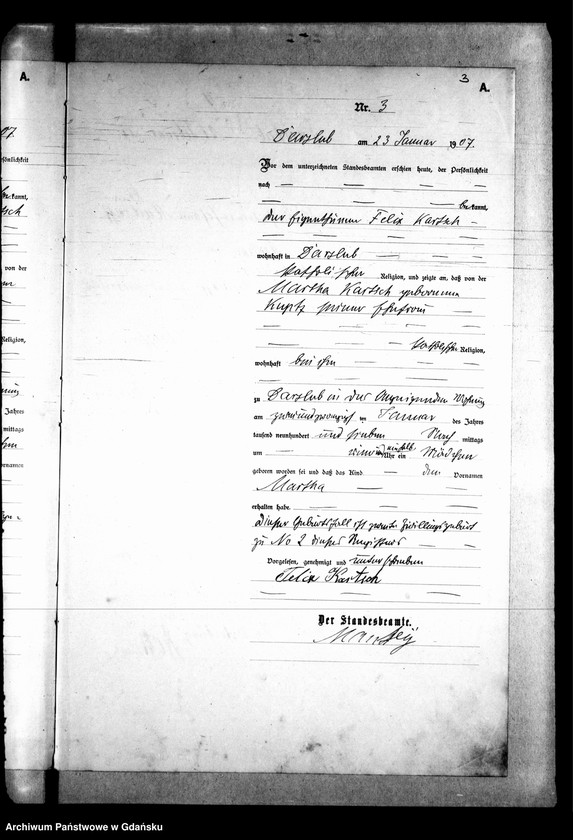 A.
3
A.
Nr. 3
Darslub am 23 Januar 1907.
Vor dem unterzeichneten Standesbeamten erschien heute, der Persönlichkeit
nach
bekannt,
der Eigenthümer Felix Kartsch
wohnhaft in Darslub
katholischer Religion, und zeigte an, daß von der
Martha Kartsch geborenen
seiner Ehefrau
katholischer Religion,
wohnhaft bei ihm
zu Darslub in der Wohnung
am zweiundzwanzigsten Januar des Jahres
tausend neunhundert und sieben Nach mittags
um einundeinhalb Uhr ein Mädchen
geboren worden sei und daß das Kind den Vornamen
Martha
erhalten habe.
Dieser Geburtsfall ist zweite Zwillingsgeburt
zu No 2 dieses Registers
Vorgelesen, genehmigt und unterschrieben
Felix Kartsch
Der Standesbeamte.
07.
rsönlichkeit
bekannt,
tsch
von der
Religion,
Jahres
mittags
ornamen
Archiwum Państwowe w Gdańsku